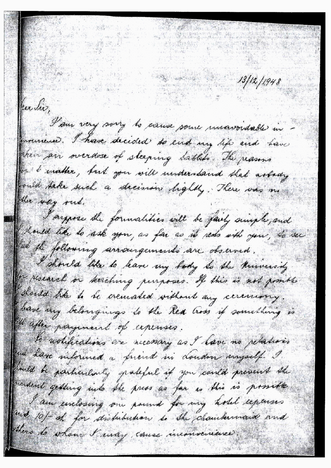 13/12/1948
Dear Sir,
I am very sorry to cause some unavoidable in-
convenience. I have decided to end my life and have
taken an overdose of sleeping tablets. The reasons
don't matter, but you will understand that nobody
would take such a decision lightly. There was no
other way out.
I suppose the formalities will be fairly simple, and
should like to ask you, as far as it rests with you, to see
the following arrangements are observed.
I should like to have my body to the University
for research or teaching purposes. If this is not possible
should like to be cremated without any ceremony.
leave my belongings to the Red Cross if something is
left after payment of expenses.
No notifications are necessary as I have no relations
and have informed a friend in London myself. I
would be particularly grateful if you could prevent the
incident getting into the press as far as this is possible
I am enclosing one pound for my hotel expenses
and 10/- for distribution to the chambermaid and
others to whom I may cause inconvenience